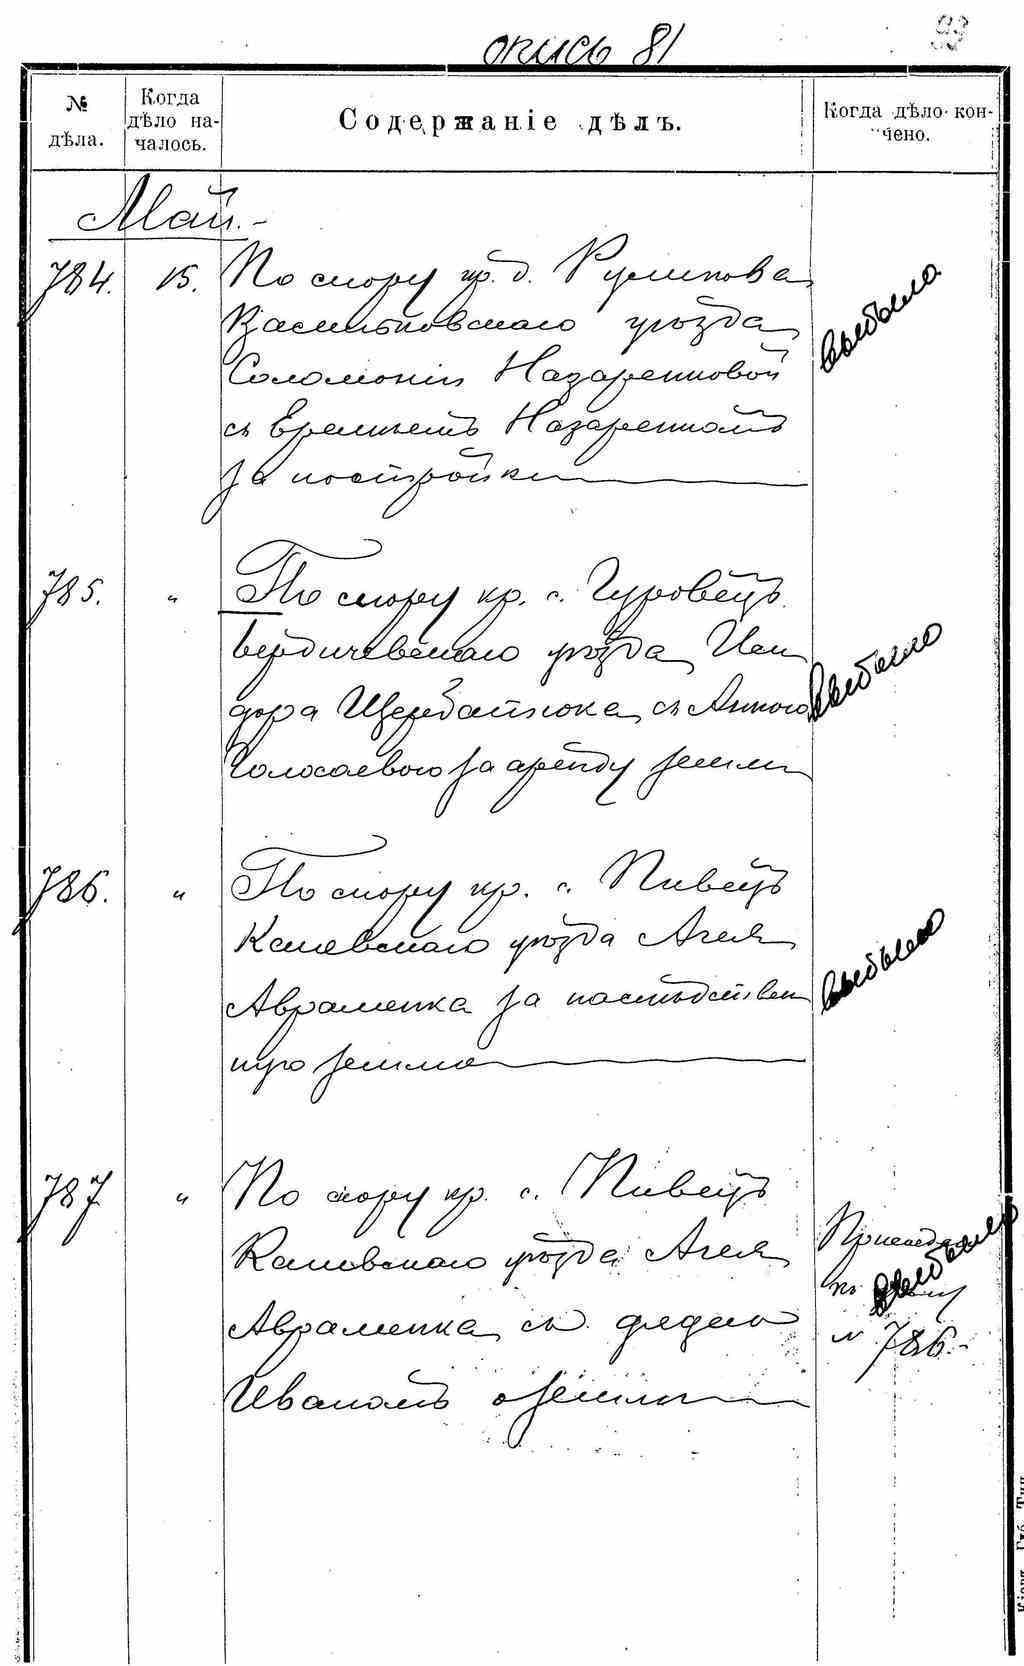 опись 81
93
№ дѣла.
Когда дѣло на-
чалось.
Содержаніе дѣлъ.
Когда дѣло кон-
чено.
Май.
784. 15. По спору кр. д. Руликова
Васильковскаго уѣзда
Соломоніи Назаренковой
съ Еремѣемъ Назаренкомъ
за постройки
выбыло
785. " По спору кр. с. Гуровецъ
Бердичевскаго уѣзда Иси
дора Щербатюка съ Анною
Голосаевою за аренду земли
выбыло
786. " По спору кр. с. Пивецъ
Каневскаго уѣзда Агея
Авраменка за наслѣдствен
ную землю
выбыло
787 " По спору кр. с. Пивецъ
Каневскаго уѣзда Агея
Авраменка съ дядею
Иваномъ о землѣ
выбыло
къ
№ 786.